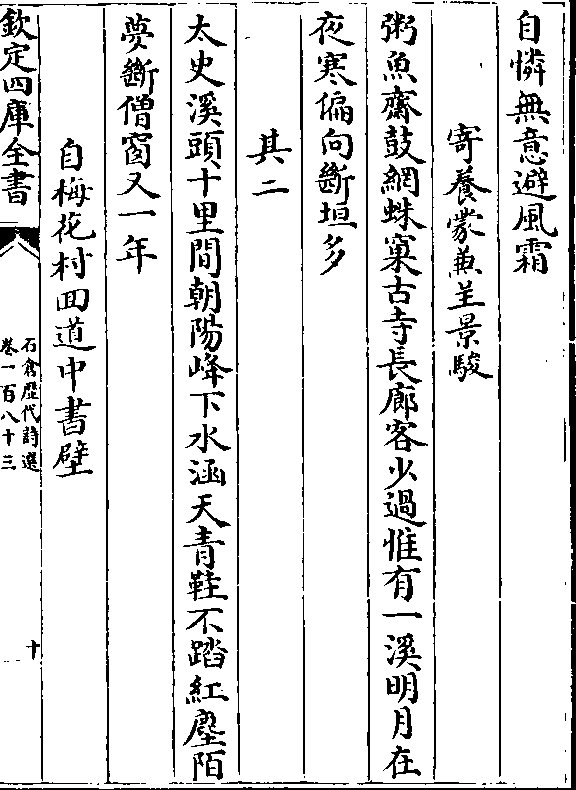 自憐無意避風霜
寄養蒙兼呈景駿
粥魚齋鼓網蛛窠古寺長廊客少過惟有一溪明月在
夜寒偏向斷垣多
其二
太史溪頭十里間朝陽峰下水涵天青鞋不踏紅塵陌
夢斷僧窗又一年
自梅花村回道中書壁
欽定四庫全書
石倉歷代詩選
卷一百八十三
十